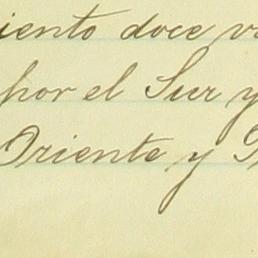 iento doce va
por el Sur y
Oriente y P